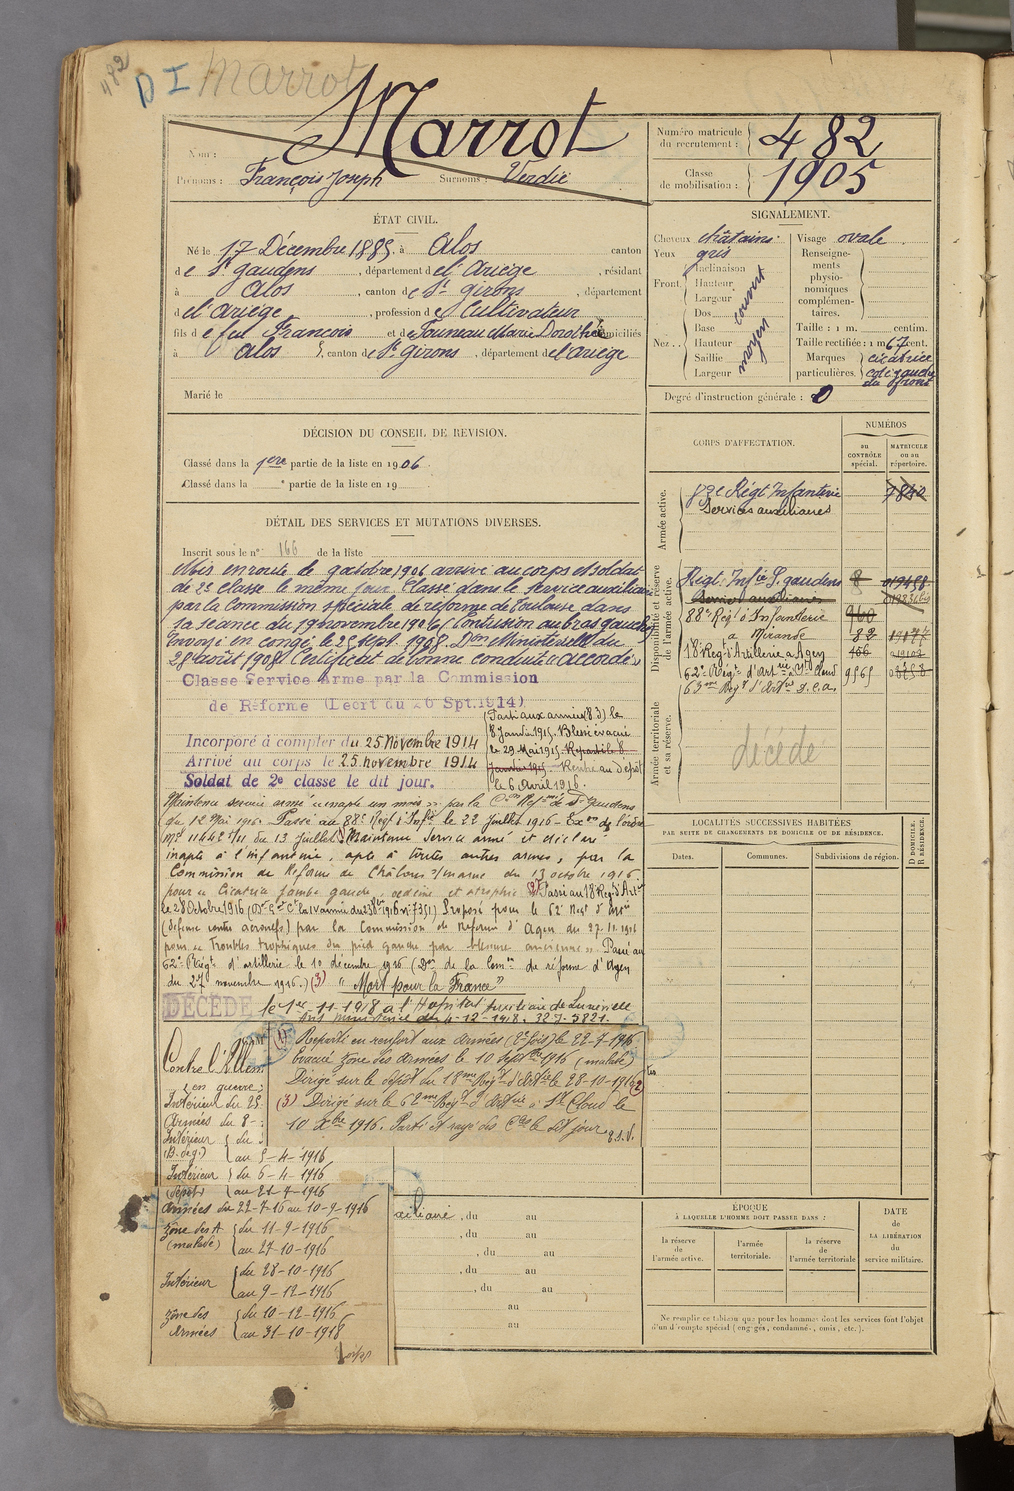 482
D I Marrot
Marrot
Nom :
Prénoms : François Joseph Surnoms : Verdié
Numéro matricule du recrutement : 482
Classe de mobilisation : 1905
ÉTAT CIVIL.
Né le 17 Décembre 1885, à Alos canton
de St gaudens, département de l'Ariège, résidant
à Alos, canton de St girons, département
d el'ariège, profession de Cultivateur
fils de feu François et de Fourneau Marie Dorothée domiciliés
à Alos, canton de St girons, département de l'ariège
Marié le
SIGNALEMENT.
Cheveux châtains
Yeux gris
Front Inclinaison
Hauteur
Largeur
couvert
Nez Dos
Base
Hauteur
Saillie
Largeur
moyen
Visage ovale
Renseignements physionomiques complémentaires.
Taille : 1 m. centim.
Taille rectifiée : 1 m 67 cent.
Marques particulières. cicatrice
coté gauche
du front
Degré d'instruction générale : 0
DÉCISION DU CONSEIL DE REVISION.
Classé dans la 1ere partie de la liste en 1906.
Classé dans la e partie de la liste en 19
DÉTAIL DES SERVICES ET MUTATIONS DIVERSES.
Inscrit sous le n° 166 de la liste
Mis en route le 9 octobre 1906 arrivé au corps et soldat
de 2e classe le même jour. Classé dans le Service auxiliaire
par la Commission spéciale de réforme de Toulouse dans
sa séance du 19 novembre 1906 (Contusion au bras gauche)
Envoyé en congé le 25 Sept. 1908. Don Ministerielle du
28 avril 1908 Certificat de bonne conduite "accordé"
Classé Service Armé par la Commission
de Réforme (Décrt du 26 Spt.1914)
Incorporé à compter du 25 Novembre 1914
Arrivé au corps le 25 novembre 1914
Soldat de 2e classe le dit jour.
Parti aux armées (8.3) le
8 Janvier 1915. Blessé évacué
le 29 Mai 1915. Reparti le 8
Janvier 1915. Rentré au dépôt
le 6 Avril 1916.
Maintenu service armé "inapte un mois" par la Con Refme de St gaudens
du 12 Mai 1916. Passé au 88e Regt d'Infie le 22 Juillet 1916 - Exon de l'ordre
Mel 11442 1/11 du 13 Juillet. Maintenu Service armé et déclaré
inapte à l'infanterie, apte à toutes autres armes, par la
Commission de Réforme de Châlons s/marne du 13 octobre 1916.
pour "Cicatrice jambe gauche, oedème et atrophie" (2) Passé au 18 Regt d'Artie
le 28 Octobre 1916 Proposé pour le 62e Regt d'Artie
(défense contre aéronefs) par la Commission de Réforme d'Agen du 27.11.1916
pour "Troubles trophiques du pied gauche par blessure ancienne" Passé au
62e Régt d'artillerie le 10 décembre 1916 (Don de la Comon de réforme d'Agen
du 27 novembre 1916.) (3) "Mort pour la France"
DÉCÉDÉ le 1er-11-1918 à l'Hopital auxiliaire de Lunéville
Avis ministériel du 4-12-1918.
Contre l'Allem
en guerre :
Intérieur du 25-
Armées du 8-
Intérieur du
au 5-4-1916
Intérieur du 6-4-1916
(dépôt) au 21-7-1916
Armées du 22-7-16 au 10-9-1916
Zône des A. du 11-9-1916
(malade) au 27-10-1916
Intérieur du 28-10-1916
au 9-12-1916
Zône des du 10-12-1916
Armées au 31-10-1918
(1) Reparti en renfort aux Armées (2e fois) le 22-7-1916.
Evacué zone des Armées le 10 Septbre 1916 (malade)
Dirigé sur le dépôt du 18me Régt d'Artie le 28-10-1916 (2)
(3) Dirigé sur le 62me Régt d'Artie à St Cloud le
10 Xbre 1916. Parti et rayé des Cles le dit jour
CORPS D'AFFECTATION.
NUMÉROS
au CONTRÔLE spécial.
MATRICULE ou au répertoire.
Armée active.
Régt Infanterie
Services auxiliaires
Disponibilité et réserve de l'armée active.
Régt Infie St gaudens 8
Service auxiliaire
88e Régt d'Infanterie 960
à Mirande 82
18e Régt d'Artillerie à Agen 466
62e Régt d'Artie St Cloud 9565
63me Régt d'Artie
Armée territoriale et sa réserve.
décédé
LOCALITÉS SUCCESSIVES HABITÉES
PAR SUITE DE CHANGEMENTS DE DOMICILE OU DE RÉSIDENCE.
Dates. Communes. Subdivisions de région.
D DOMICILE. R RÉSIDENCE.
xiliaire, du au
, du au
, du au
, du au
, du au
au
au
ÉPOQUE
À LAQUELLE L'HOMME DOIT PASSER DANS :
la réserve de l'armée active.
l'armée territoriale.
la réserve de l'armée territoriale
DATE de LA LIBÉRATION du service militaire.
Ne remplir ce tableau que pour les hommes dont les services font l'objet
d'un décompte spécial (engagés, condamnés, omis, etc.).